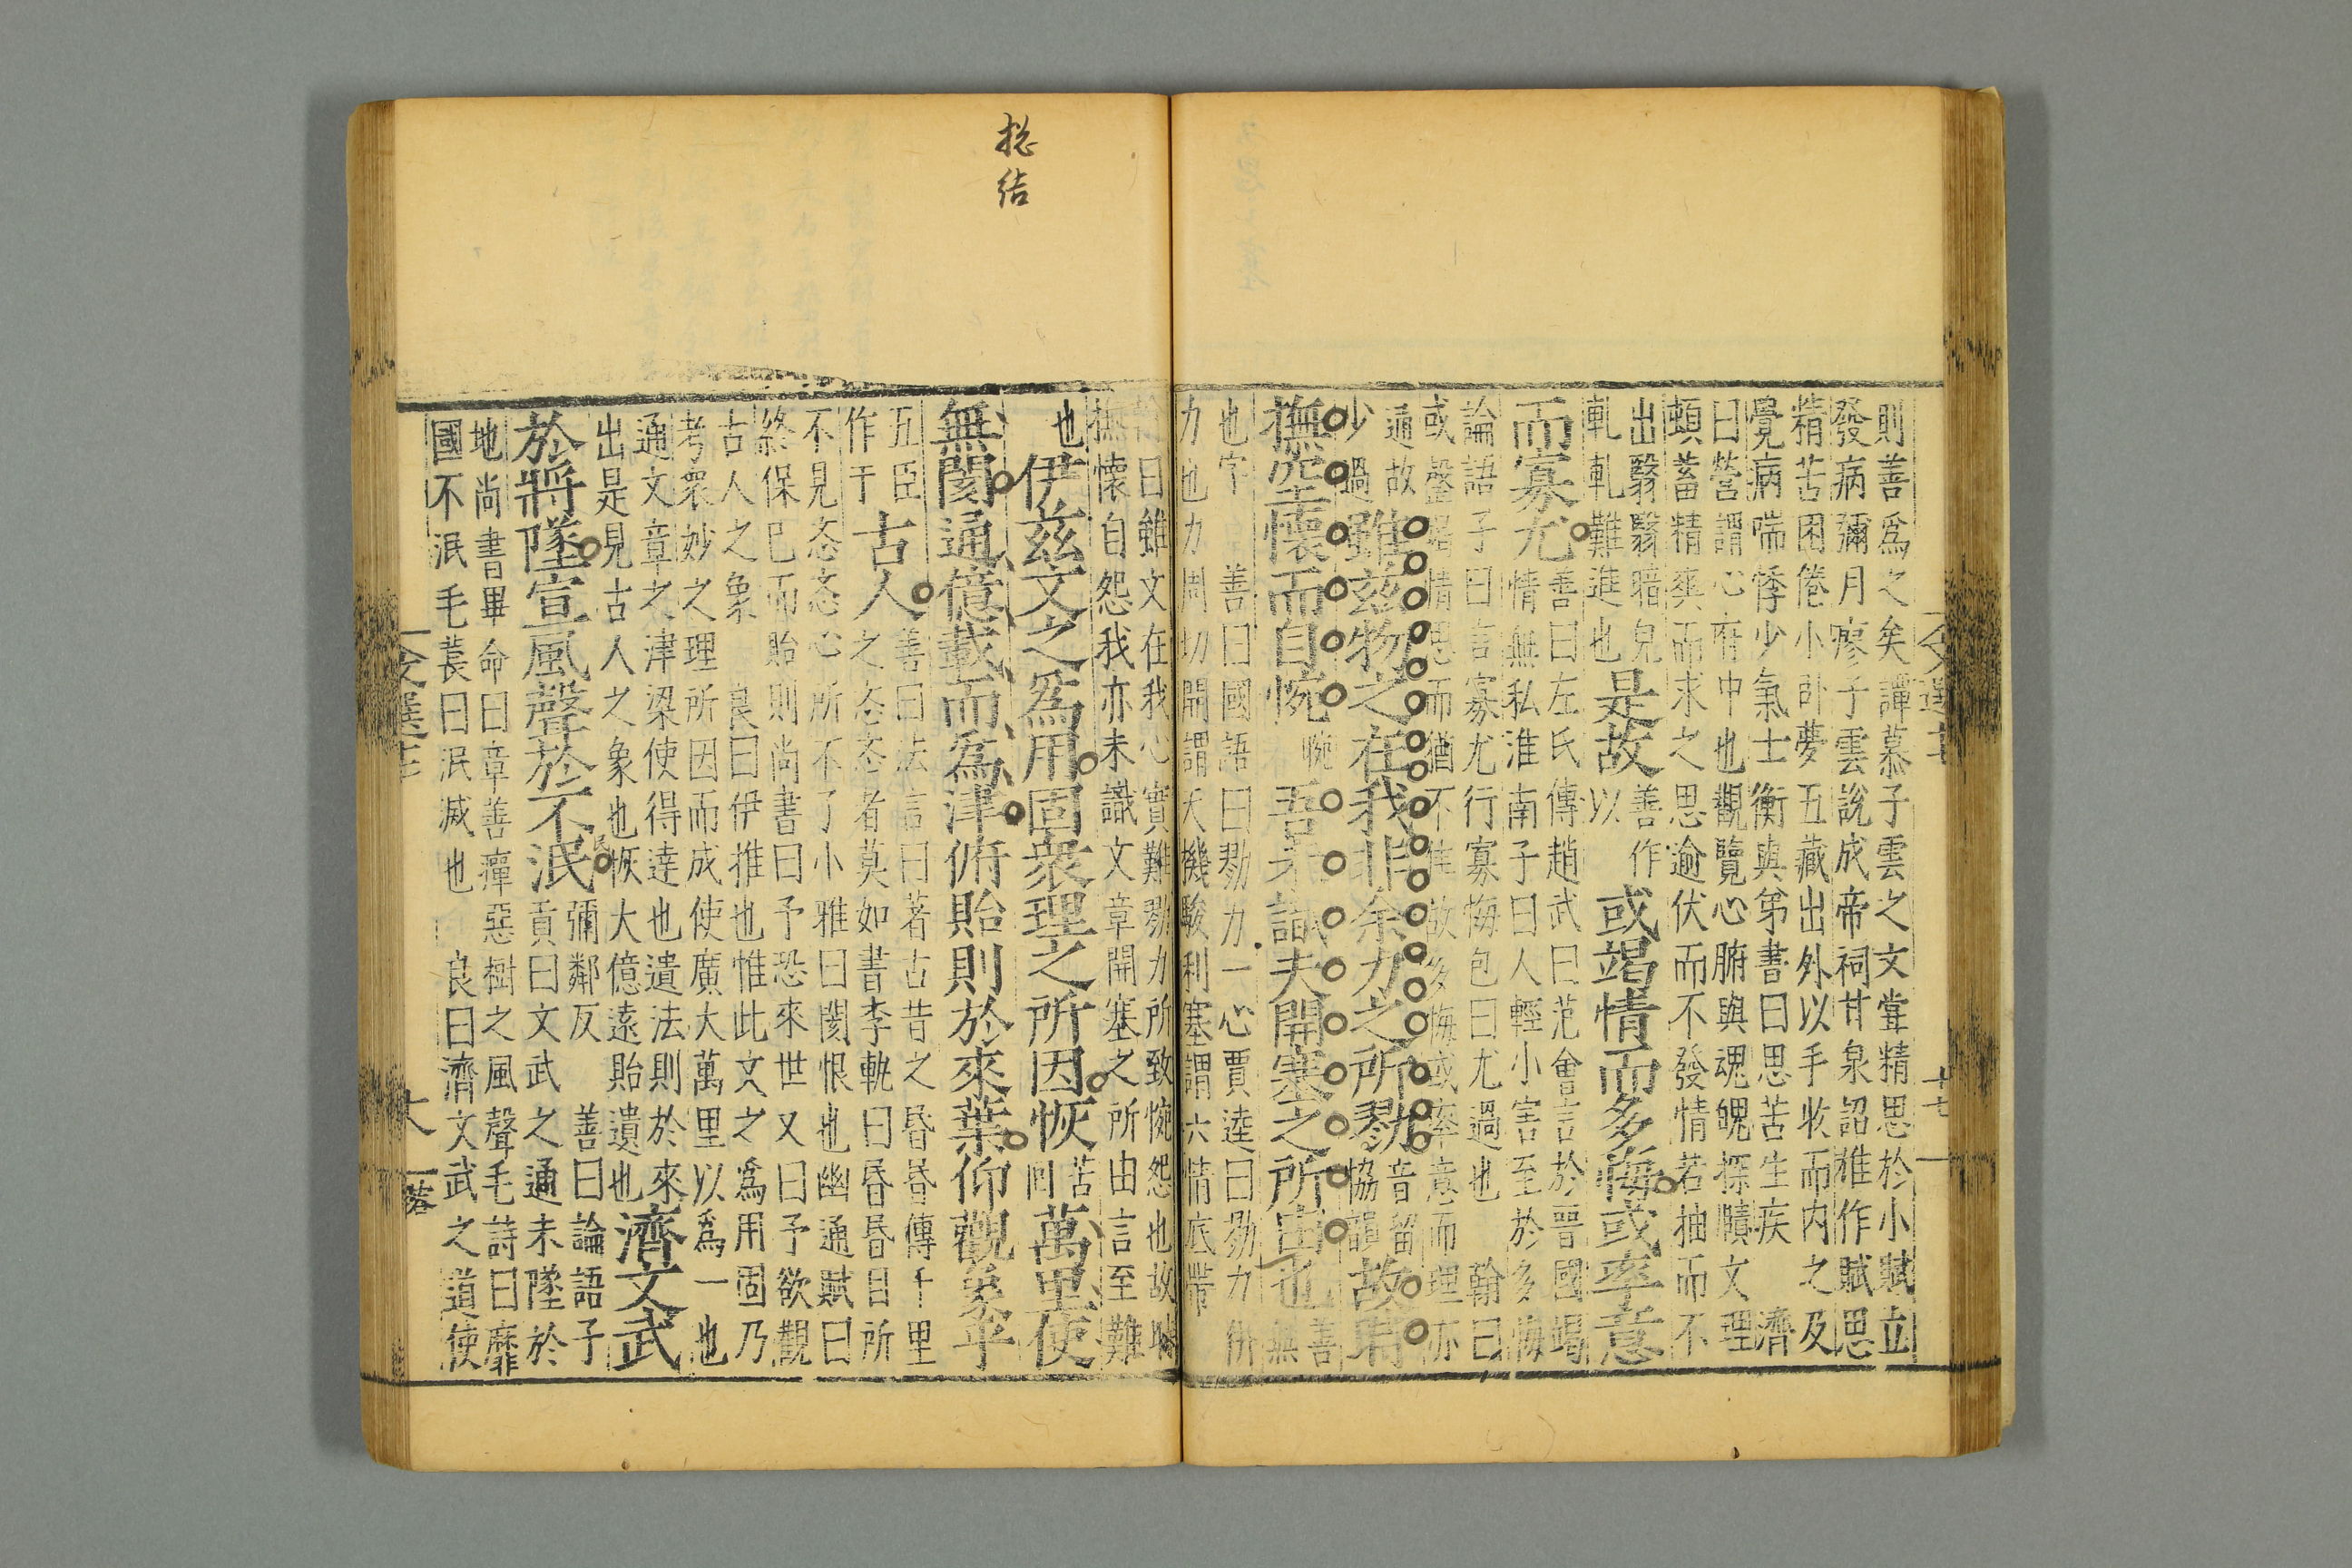 則善爲之矣譚慕子雲之文嘗精思於小賦立
發病彌月瘳子雲說成帝祠甘泉詔雄作賦思
精苦困倦小卧夢五藏出外以手收而內之及
覺病喘悸少氣士衡與第書曰思苦生疾 濟
曰營謂心府中也觀覽心腑與魂魄探賾文理
頓蓄精爽而求之思逾伏而不發情若抽而不
出翳翳暗皃
軋軋難進也
是故
善作
以
或竭情而多悔或率意
而寡尤
善曰左氏傳趙武曰范會言於晉國竭
情無私淮南子曰人輕小害至於多悔
論語子曰言寡尤行寡悔包曰尤過也 翰曰
或罄竭情思而猶不佳故多悔或率意而理亦
通故
少過
雖茲物之在我非余力之所勠
音留
協韻
故時
撫空懷而自惋
惋
吾未識夫開塞之所由也
善
無
也字 善曰國語曰勠力一心賈逵曰勠力併
力也力周切開謂天機駿利塞謂六情底滯
翰曰雖文在我心實難勠力所致惋怨也故時
撫懷自怨我亦未識文章開塞之所由言至難
也
伊茲文之爲用固衆理之所因恢
苦
回
萬里使
無閡通億載而爲津俯貽則於來葉仰觀象乎
五臣
作于
古人
善曰法言曰著古昔之㖧㖧傳千里
之忞忞者莫如書李軌曰㖧㖧目所
不見忞忞心所不了小雅曰閡恨也幽通賦曰
終保已而貽則尚書曰予恐來世又曰予欲觀
古人之象 良曰伊推也惟此文之爲用固乃
考衆妙之理所因而成使廣大萬里以爲一也
通文章之津梁使得達也遺法則於來
出是見古人之象也恢大億遠貽遺也
濟文武
於將墜宣風聲於不泯
民
彌鄰反
善曰論語子
貢曰文武之通未墜於
地尚書畢命曰章善癉惡樹之風聲毛詩曰靡
國不泯毛萇曰泯滅也 良曰濟文武之道使
捴結
文選
十七
文選